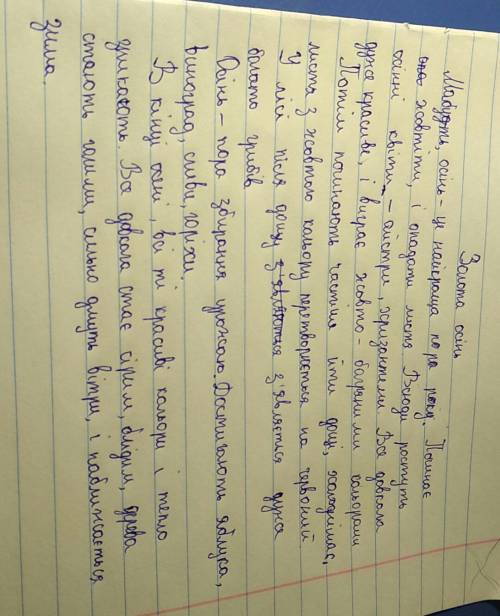 Золота осінь
Мабудть, осінь - це найкраща пора року. Починає
жовтіти, і опадати листя. Всюди ростуть
осінні квіти - айстри, хризантеми. Все довкола
дуже красиве, і виграє жовто-багряними кольорами
Потім починають частіше йти дощі, холоднішає,
листя з жовтого кольору перетворюється на червоний
У лісі після дощу з'являються з'являється дуже
багато грибів.
Осінь - пора збирання урожаю. Достигають яблука,
виноград, сливи, горіхи.
В кінці осені, всі ті красиві кольори і тепло
зникають. Все довкола стає сірим, блідим, дерева
стають голими, сильно дмуть вітри, і наближається
зима.